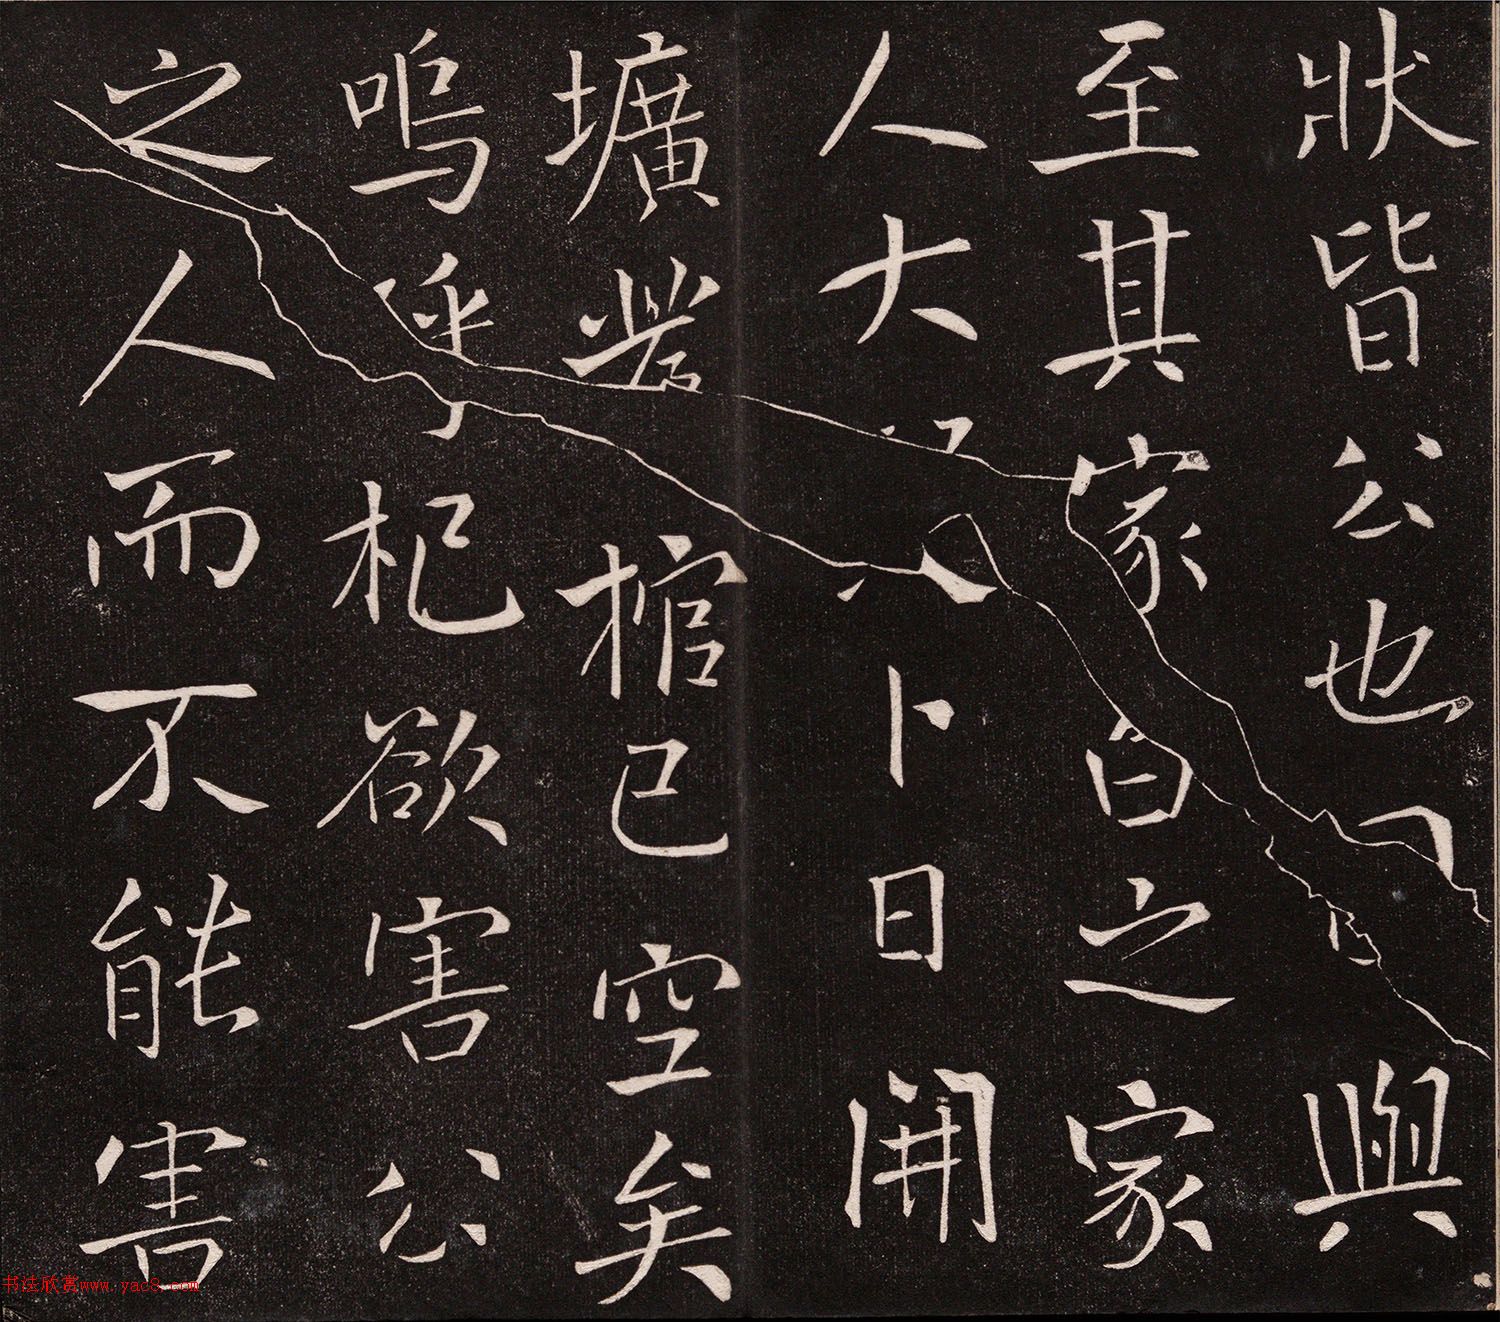 狀皆公也與
至其家白之家
人大卜日開
壙發棺已空矣
嗚呼杞欲害公
之人而不能害
书法欣赏www.yac8.com